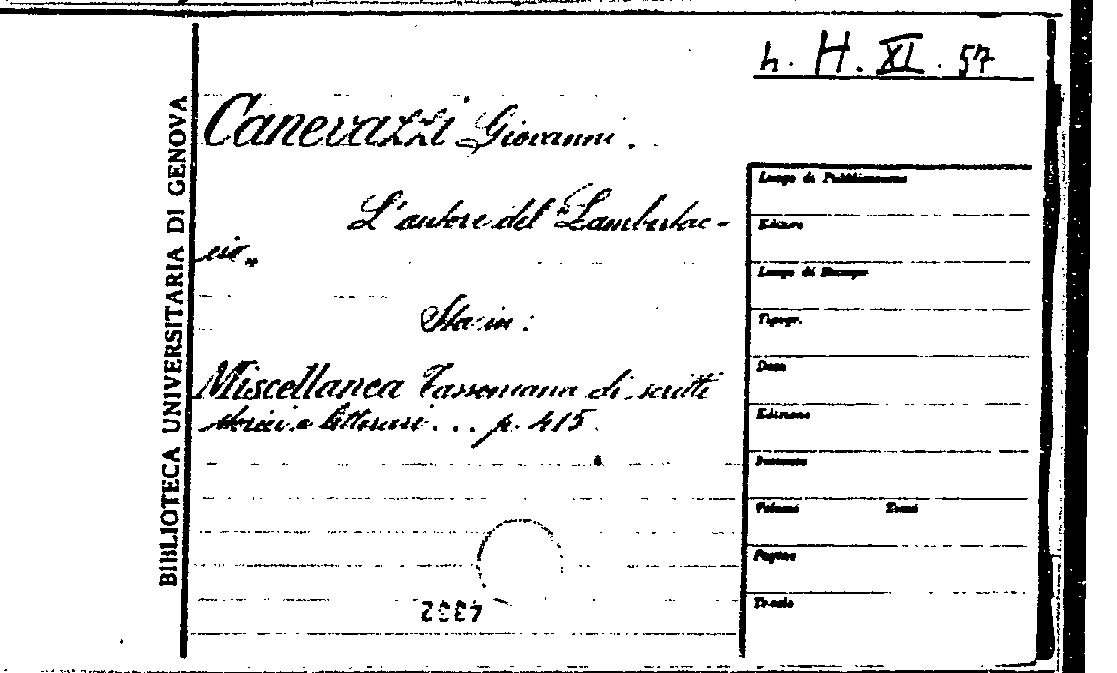 h. H. XI. 57
BIBLIOTECA UNIVERSITARIA DI GENOVA
Canevazzi Giovanni.
L'autore del "Lambertac-
cio„
Sta in:
Miscellanea Tassoniana di scritti
storici e letterari... p. 415.
Luogo di Pubblicazione
Editore
Luogo di Stampa
Tipogr.
Data
Edizione
Formato
Volumi Tomi
Pagine
Tavole